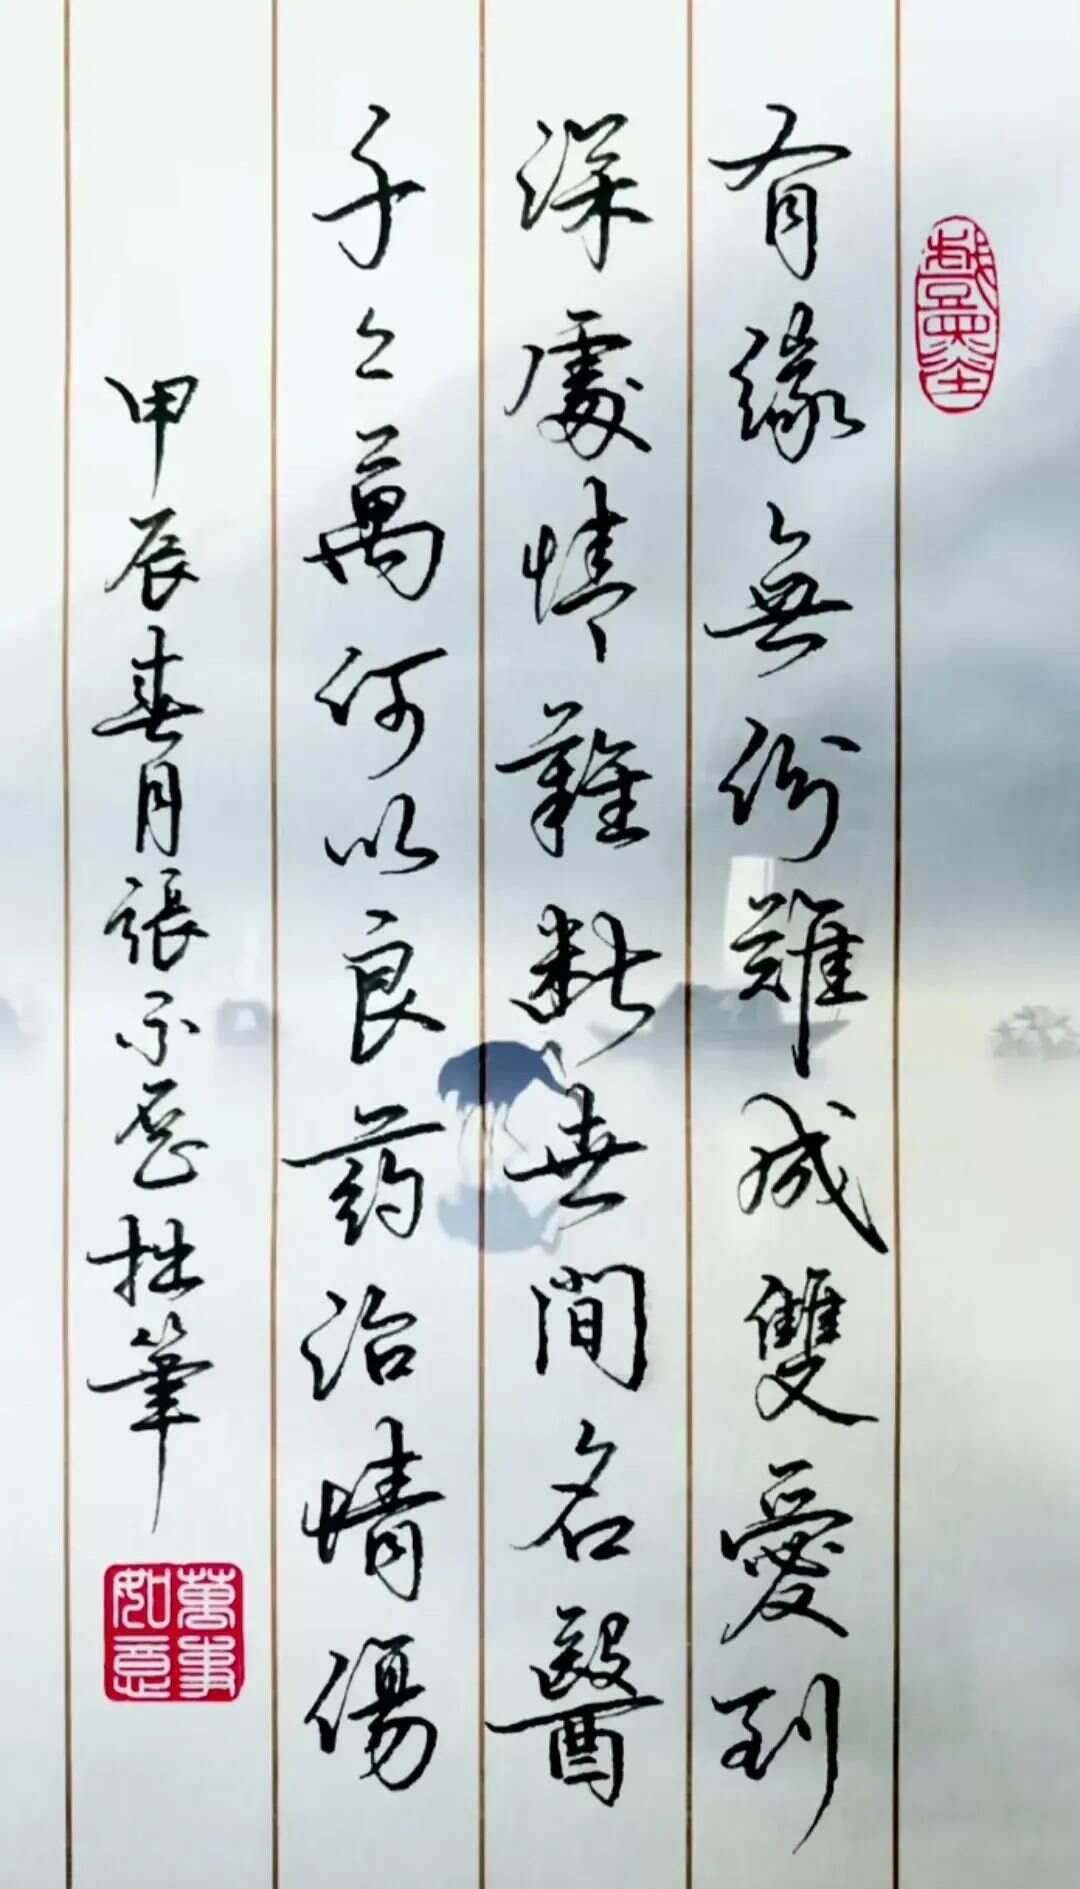 有緣無份難成雙愛到
深處情難断世間名醫
千々萬何以良药治情傷
甲辰春月張拙筆
萬事如意